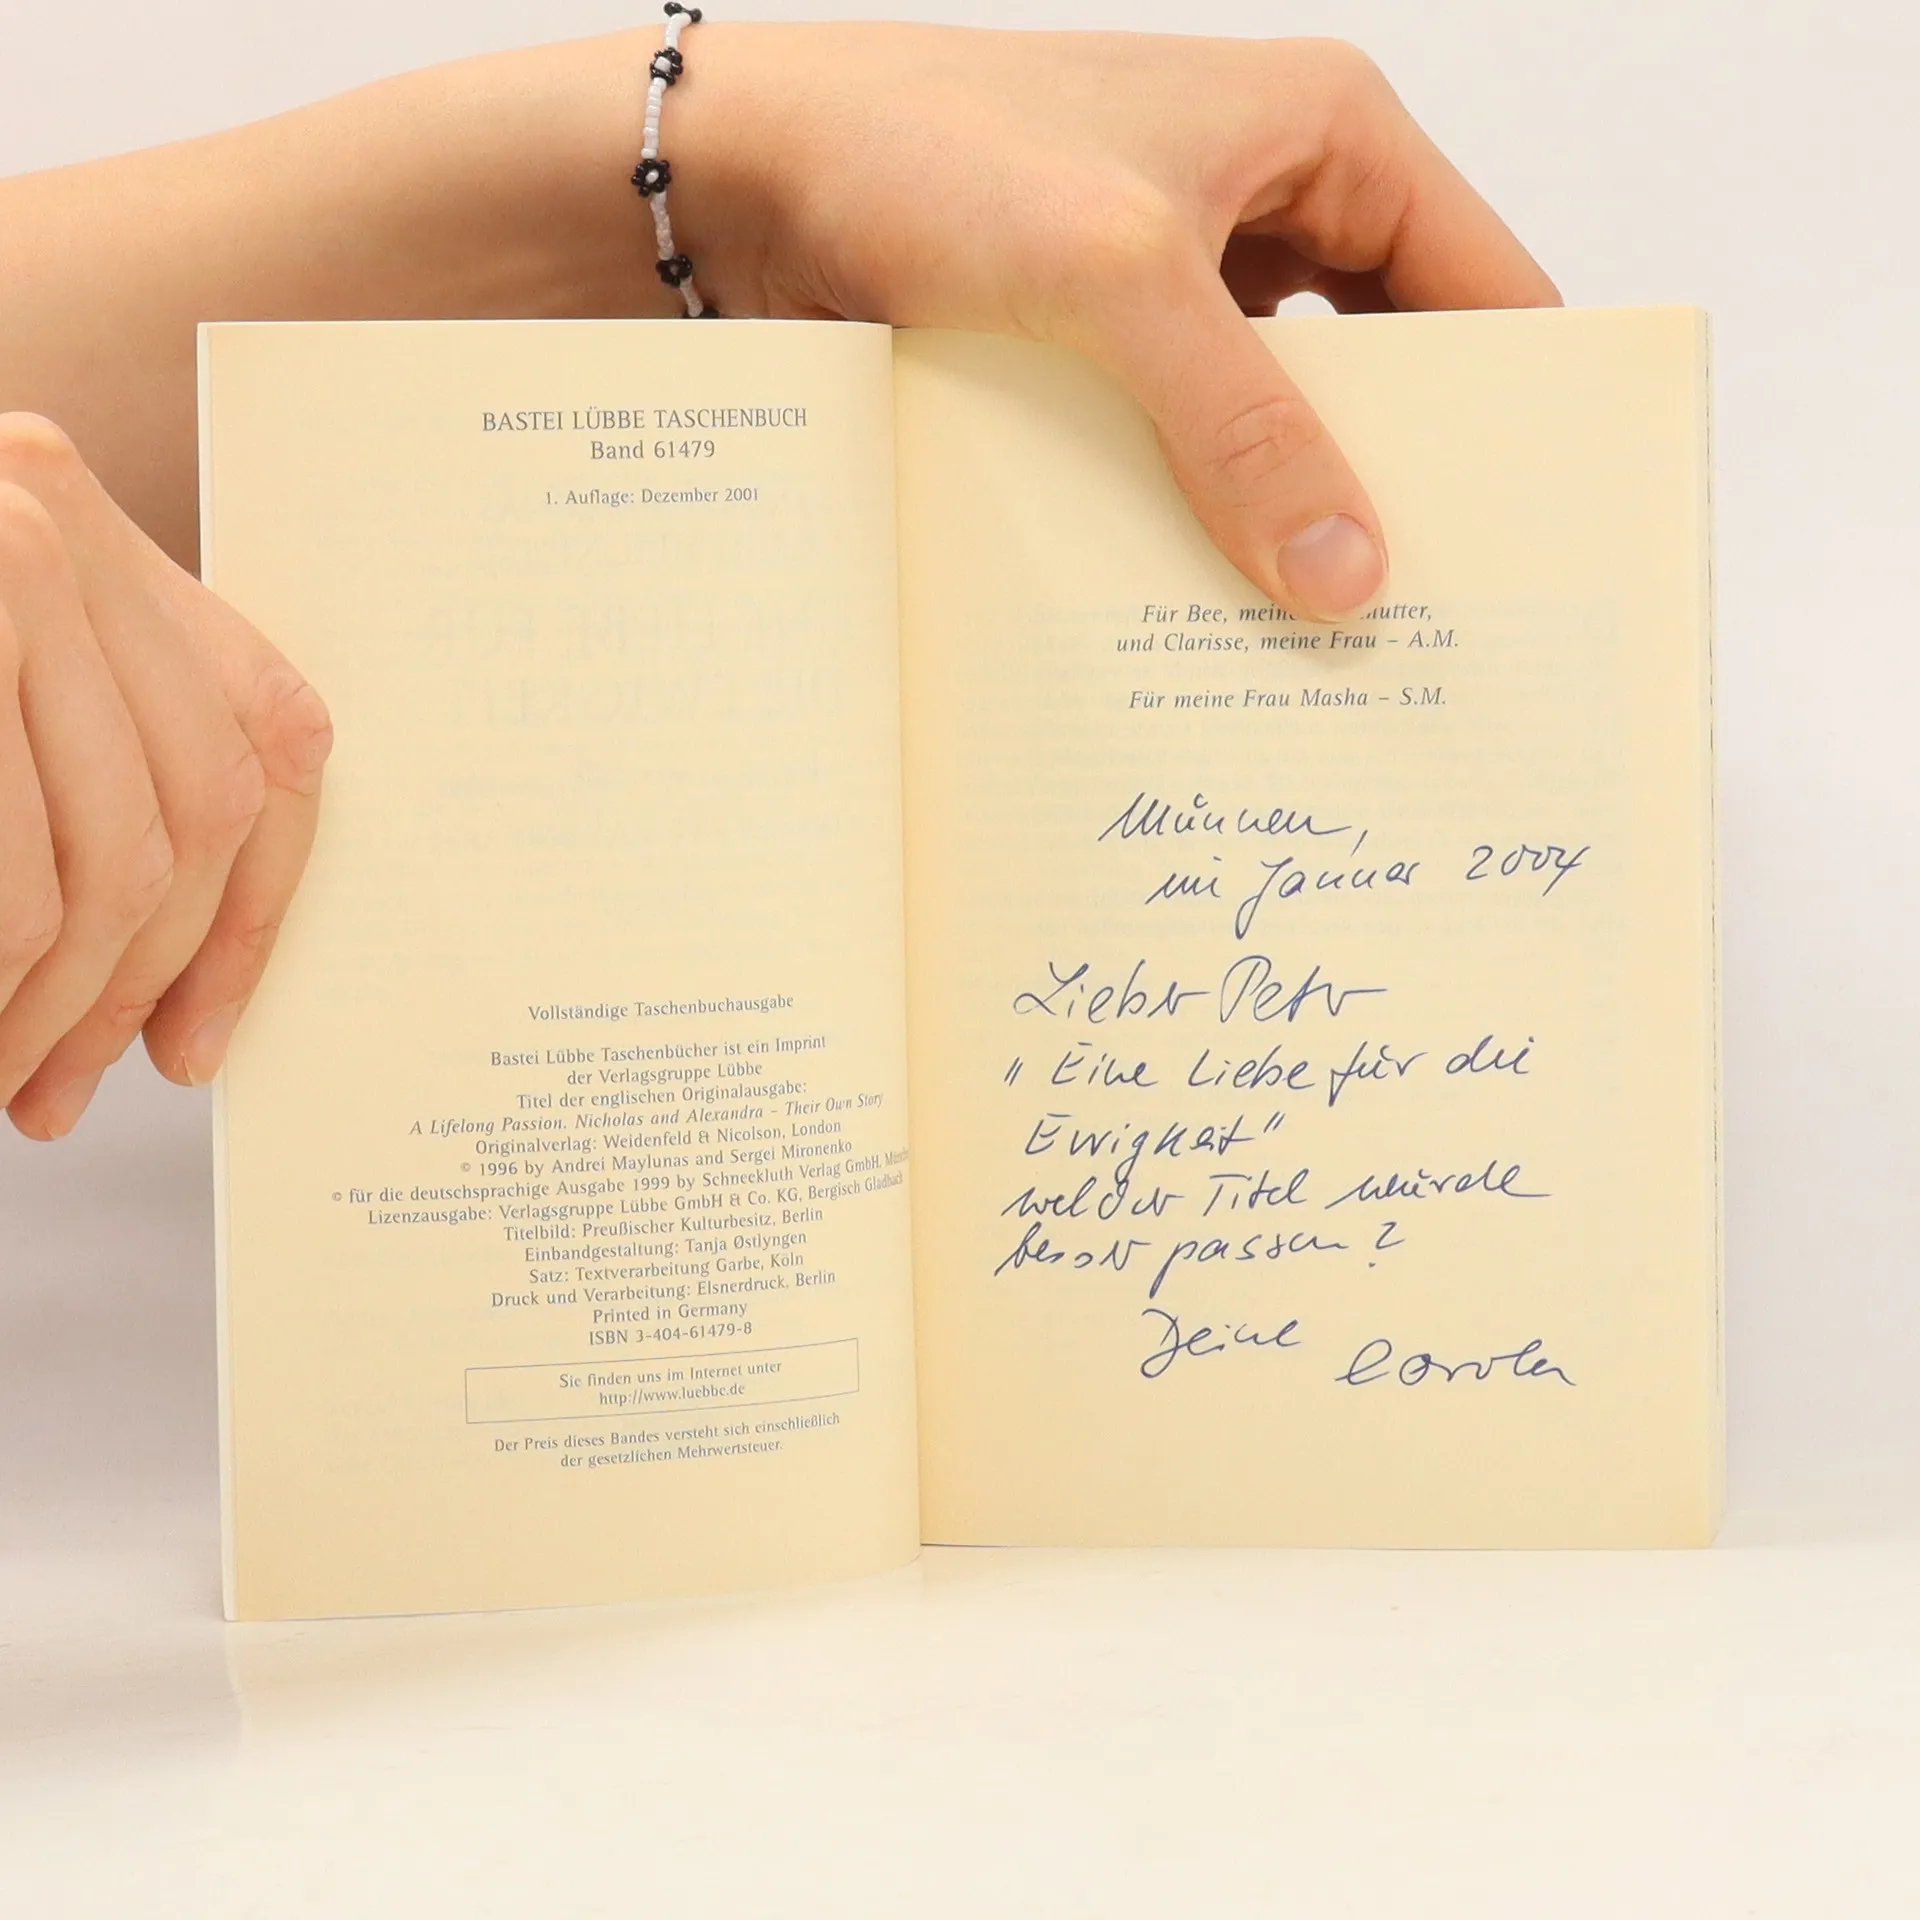 BASTEI LÜBBE TASCHENBUCH
Band 61479
1. Auflage: Dezember 2001
Vollständige Taschenbuchausgabe
Bastei Lübbe Taschenbücher ist ein Imprint
der Verlagsgruppe Lübbe
Titel der englischen Originalausgabe:
A Lifelong Passion. Nicholas and Alexandra – Their Own Story
Originalverlag: Weidenfeld & Nicolson, London
© 1996 by Andrei Maylunas and Sergei Mironenko
© für die deutschsprachige Ausgabe 1999 by Schneekluth Verlag GmbH,
Lizenzausgabe: Verlagsgruppe Lübbe GmbH & Co. KG, Bergisch Gladbach
Titelbild: Preußischer Kulturbesitz, Berlin
Einbandgestaltung: Tanja Østlyngen
Satz: Textverarbeitung Garbe, Köln
Druck und Verarbeitung: Elsnerdruck, Berlin
Printed in Germany
ISBN 3-404-61479-8
Sie finden uns im Internet unter
http://www.luebbe.de
Der Preis dieses Bandes versteht sich einschließlich
der gesetzlichen Mehrwertsteuer.
Für Bee,
und Clarisse, meine Frau – A.M.
Für meine Frau Masha – S.M.
im Januar 2004
Lieber Peter
"Eine Liebe für die
Ewigkeit"
welcher Titel würde
besser passen?
Deine
Carola